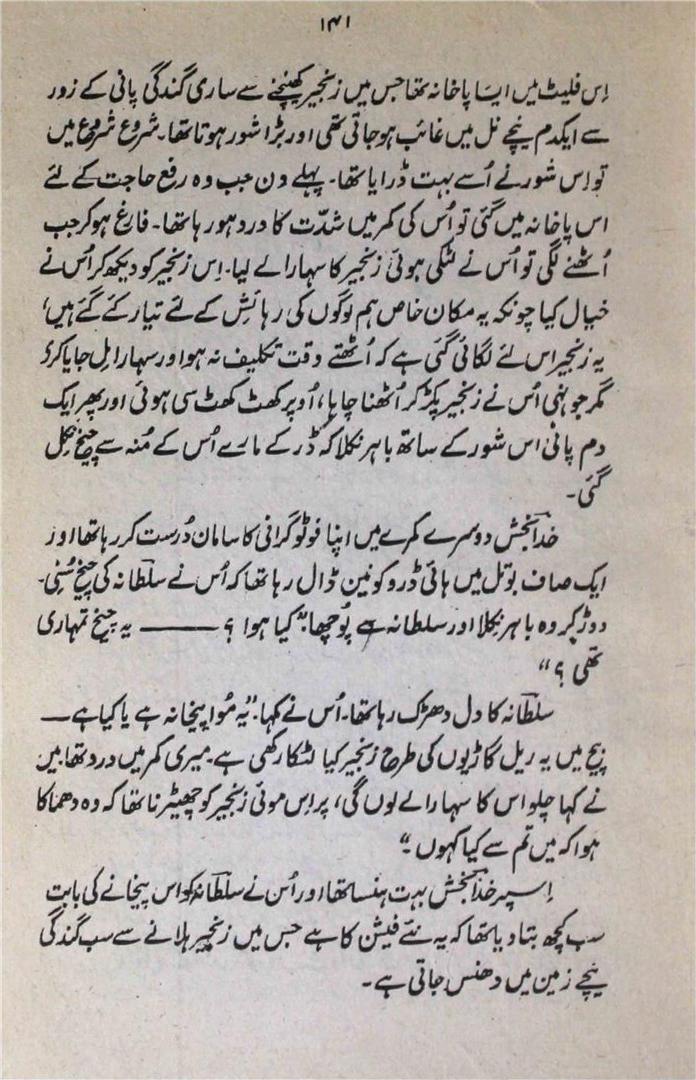 ۱۴۱
اِس فلیٹ میں ایسا پاخانہ تھا جس میں زنجیر کھینچنے سے ساری گندگی پانی کے زور
سے ایکدم نیچے نل میں غائب ہو جاتی تھی اور بڑا شور ہوتا تھا۔ شروع شروع میں
تو اِس شور نے اُسے بہت ڈرایا تھا۔ پہلے دن جب وہ رفع حاجت کے لئے
اس پاخانہ میں گئی تو اُس کی کمر میں شدّت کا درد ہو رہا تھا۔ فارغ ہو کر جب
اُٹھنے لگی تو اُس نے لٹکی ہوئی زنجیر کا سہارا لے لیا۔ اِس زنجیر کو دیکھ کر اُس نے
خیال کیا چونکہ یہ مکان خاص ہم لوگوں کی رہائش کے لئے تیار کئے گئے ہیں،
یہ زنجیر اس لئے لگائی گئی ہے کہ اُٹھتے وقت تکلیف نہ ہو اور سہارا مل جایا کرے
مگر جونہی اُس نے زنجیر پکڑ کر اُٹھنا چاہا، اُوپر کھٹ کھٹ سی ہوئی اور پھر ایک
دم پانی اس شور کے ساتھ باہر نکلا کہ ڈر کے مارے اُس کے مُنہ سے چیخ نکل
گئی۔
خدا بخش دوسرے کمرے میں اپنا فوٹو گرافی کا سامان دُرست کر رہا تھا اور
ایک صاف بوتل میں ہائی ڈرو کونین ڈال رہا تھا کہ اُس نے سلطانہ کی چیخ سُنی۔
دوڑ کر وہ باہر نکلا اور سلطانہ سے پُوچھا، "کیا ہوا ؟ ــــــ یہ چیخ تمہاری
تھی ؟"
سلطانہ کا دل دھڑک رہا تھا۔ اُس نے کہا۔ "یہ مُوا پیخانہ ہے یا کیا ہے ــ
بیچ میں یہ ریل گاڑیوں کی طرح زنجیر کیا لٹکا رکھی ہے۔ میری کمر میں درد تھا۔ میں
نے کہا چلو اس کا سہارا لے لوں گی، پر اِس موئی زنجیر کو چھیڑنا تھا کہ وہ دھماکا
ہوا کہ میں تُم سے کیا کہوں ۔"
اِسپر خدا بخش بہت ہنسا تھا اور اُس نے سلطانہ کو اس پیخانے کی بابت
سب کچھ بتا دیا تھا کہ یہ نئے فیشن کا ہے جس میں زنجیر ہلانے سے سب گندگی
نیچے زمین میں دھنس جاتی ہے۔